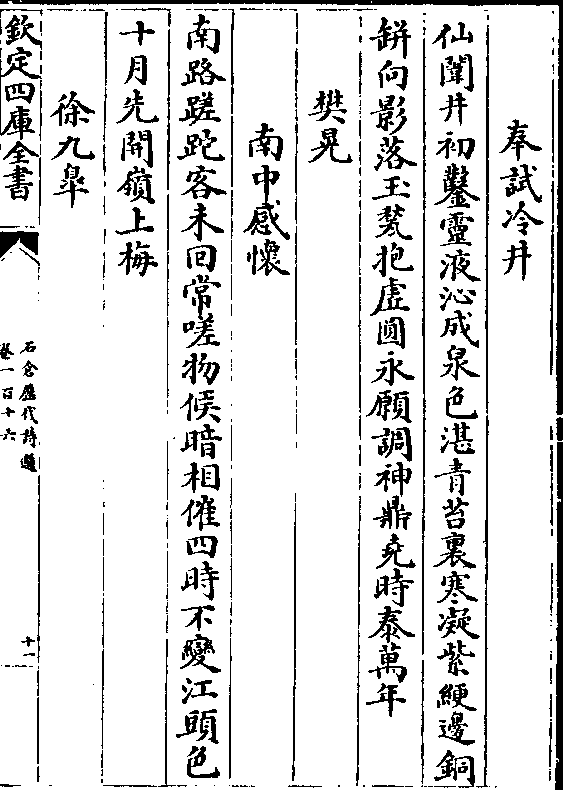 奉試冷井
仙闈井初鑿靈液沁成泉色湛青苔裏寒凝紫綆邊銅
缾向影落玉甃抱虛圓永願調神鼎堯時泰萬年
樊晃
南中感懷
南路蹉跎客未回常嗟物候暗相催四時不變江頭色
十月先開嶺上梅
徐九臯
欽定四庫全書
石倉歷代詩選
卷一百十六
十一